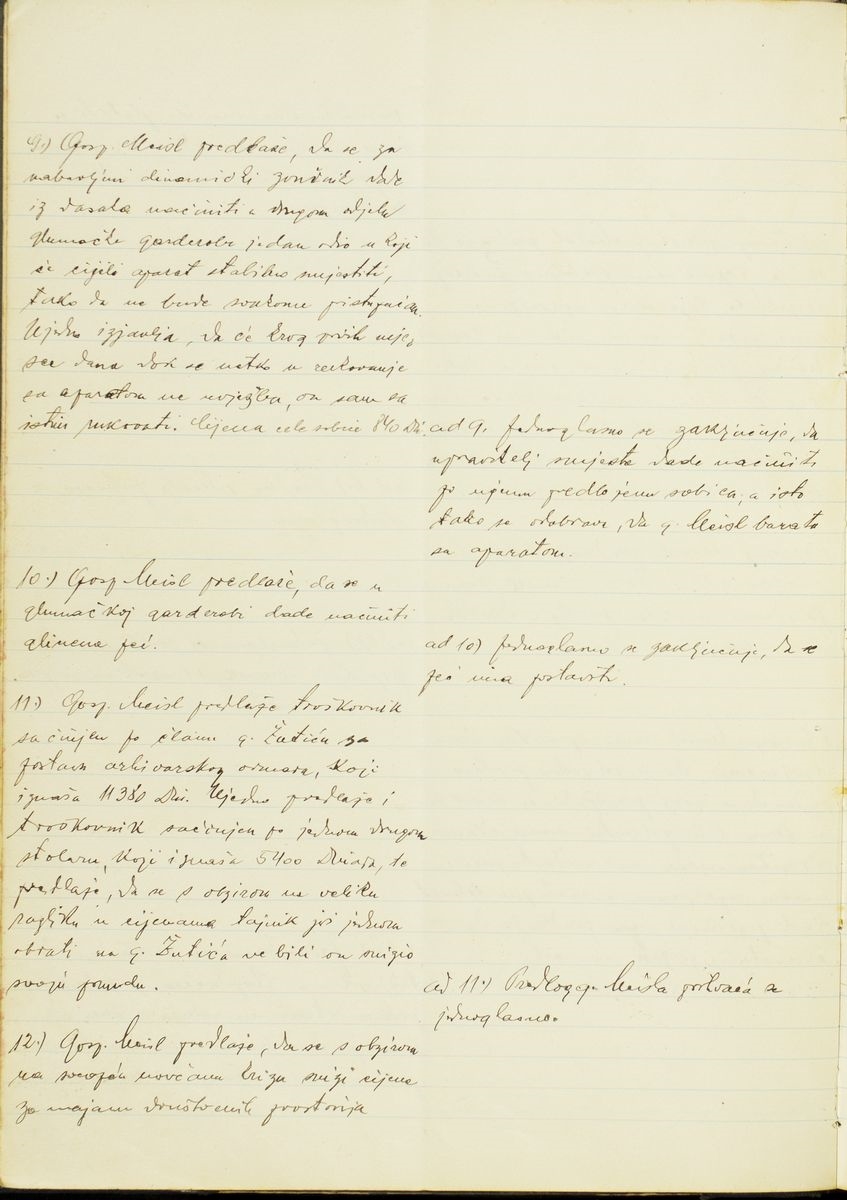 9.) Gosp. Meisl predlaže, da se za
nabavljeni dinamički zvučnik dade
iz dasaka načiniti u drugom odjelu
glumačke garderobe jedan odio u koji
će cijeli aparat stabilno smjestiti,
tako da ne bude svakome pristupačan.
Ujedno izjavlja, da će kroz prvih mje-
sec dana dok se netko u rukovanje
sa aparatom ne uvježba, on sam sa
istim rukovati. Cijena cele sobice 840 Din.
ad 9. Jednoglasno se zaključuje, da
upravitelj smjesta dade načiniti
po njemu predloženu sobicu, a isto
tako se odobrava, da g. Meisl barata
sa aparatom.
10.) Gosp Meisl predlaže, da se u
glumačkoj garderobi dade načiniti
glinena peć.
ad 10) Jednoglasno se zaključuje, da se
peć ima postaviti.
11.) Gosp. Meisl predlaže troškovnik
sačinjen po članu g. Žutiću za
postavu arhivarskog ormara, koji
iznaša 11380 Din. Ujedno predlaže i
troškovnik sačinjen po jednom drugom
stolaru, koji iznaša 5400 Dinara, te
predlaže, da se s obzirom na veliku
razliku u cijenama tajnik još jednom
obrati na g. Žutića ne bili on snizio
svoju ponudu.
ad 11.) Predlog g. Meisla prihvaća se
jednoglasno.
12.) Gosp. Meisl predlaže, da se s obzirom
na novčanu krizu snizi cijena
za najam društvenih prostorija